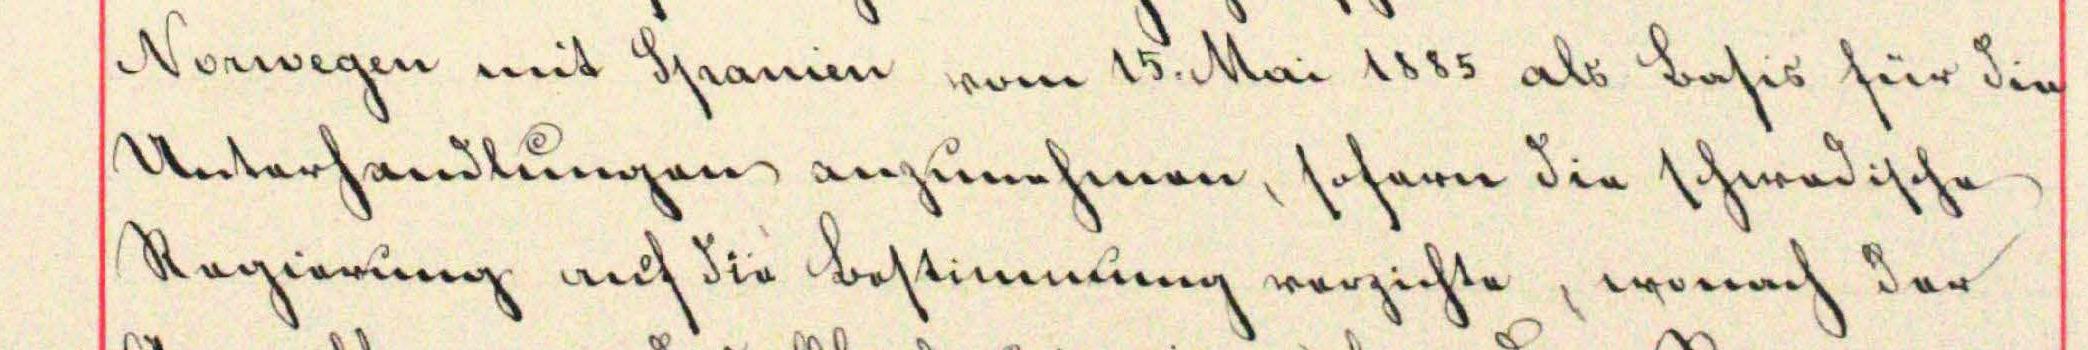 Norwegen mit Spanien vom 15. Mai 1885 als Basis für die
Unterhandlungen anzunehmen, sofern die schwedische
Regierung auf die Bestimmung verzichte, wonach der